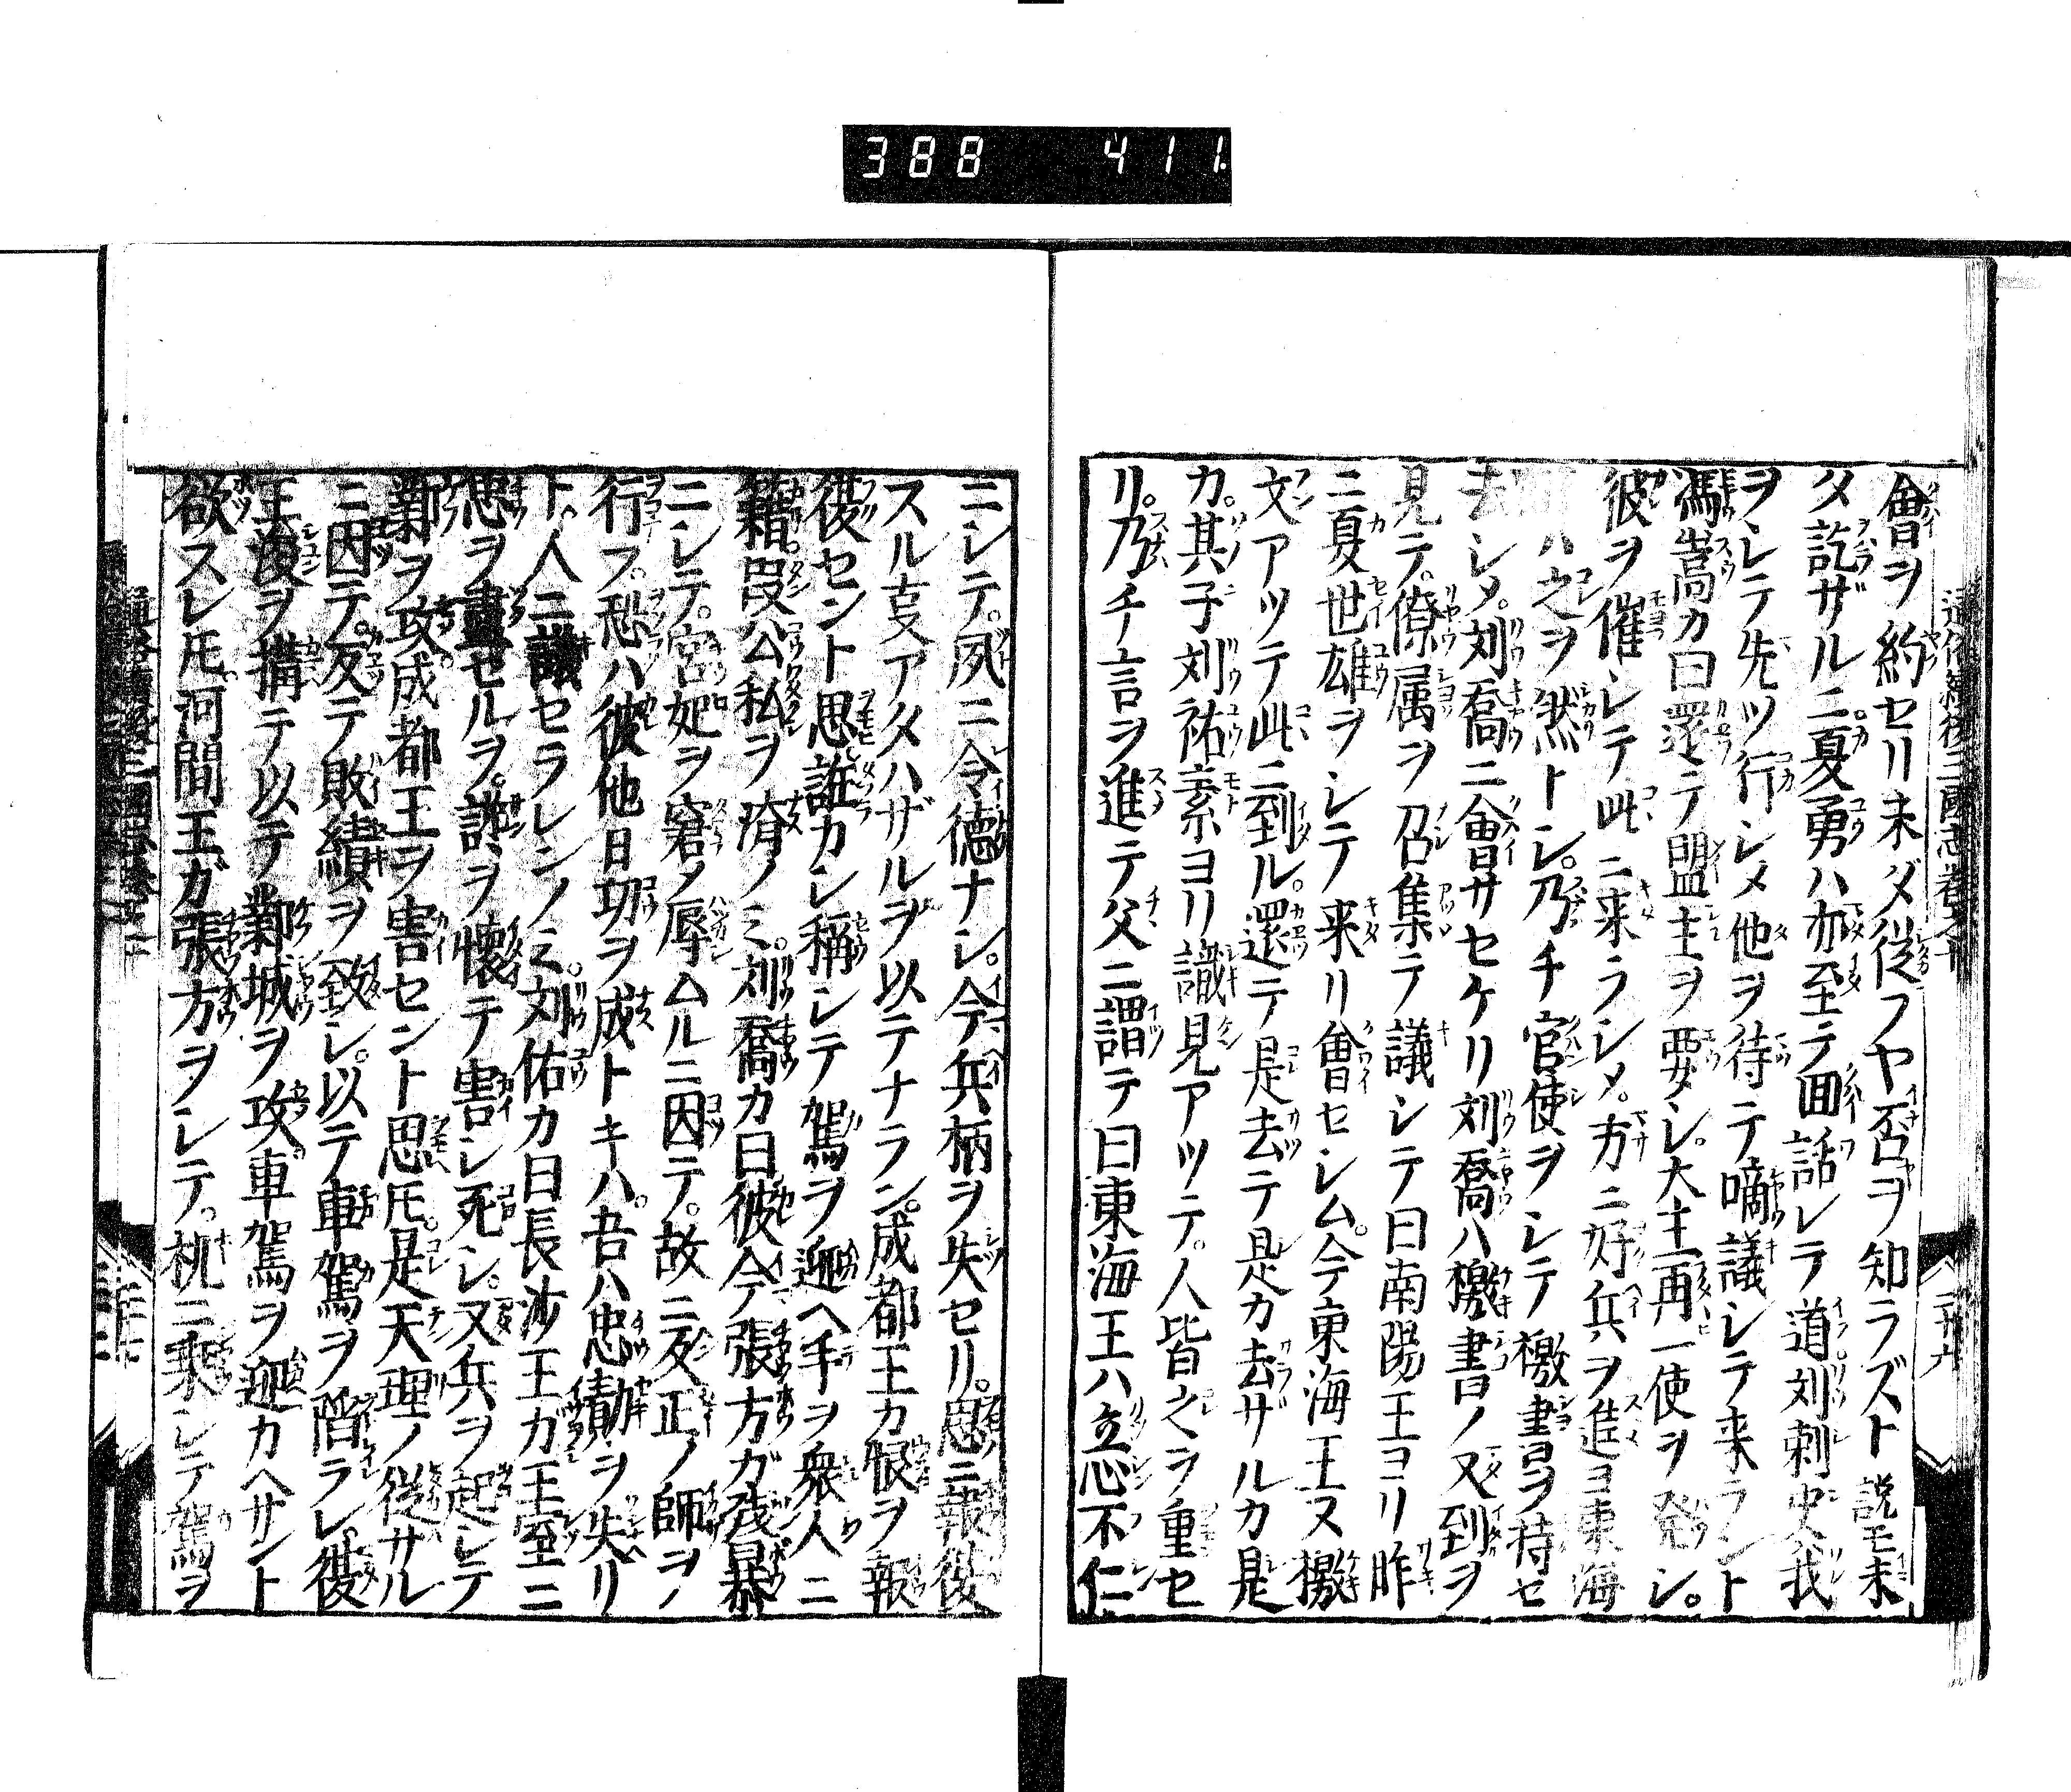 388 411
會ヲ約セリ未ダ從フヤ否ヲ知ラズト説モ未
タ訖ザルニ夏勇ハ亦至テ面話レテ道刘刺史我
ヲレテ先ツ行シメ他ヲ待テ商議レテ来ラント
馮嵩カ曰還テ盟主ヲ要シ大王再一使ヲ発シ。
彼ヲ催レテ此ニ来ラシメ。方ニ好兵ヲ進ヨ東海
ハ之ヲ然トレ。乃チ官使ヲレテ檄書ヲ持セ
去レメ。刘喬ニ會サセケリ刘喬ハ檄書ノ又到ヲ
見テ。僚属ヲ召集テ議シテ曰南陽王ヨリ昨
ニ夏世雄ヲシテ来リ會セシム。今東海王又檄
文アツテ此ニ到ル。還テ是去テ是カ去ザルカ是
カ。其子刘祐素ヨリ識見アツテ。人皆之ヲ重セ
リ。乃チ言ヲ進テ父ニ謂テ曰東海王ハ立心不仁
ニレテ。夙ニ令德ナシ。今兵柄ヲ失セリ。思ニ報復
スル㕝アタハザルヲ以テナラン。成都王カ恨ヲ報
復セント思誰カシ稱レテ駕ヲ迎ヘ手ヲ衆人ニ
籍。叚公私ヲ済ノミ。刘喬カ曰彼今張方ガ残暴
ニレテ。宮妃ヲ窘ノ辱ムルニ因テ。故ニ反正ノ師ヲ
行フ。恐ハ彼他日功ヲ成トキハ。吾ハ忠勤ヲ失リ
ト。人ニ議セラレンノミ。刘佑カ曰長沙王ガ王室ニ
忠ヲ盡セルヲ。詭ヲ懐テ害シ死シ。又兵ヲ起レテ
鄴ヲ攻。成都王ヲ害セント思ヘ𪜈。是天理ノ從サル
ニ因テ。反テ敗績ヲ致シ。以テ車駕ヲ陷ラレ。後
王浚ヲ搆テ以テ鄴城ヲ攻。車駕ヲ迎カヘサント
欲スレ𪜈。河間王ガ張方ヲレテ。机ニ乗レテ駕ヲ